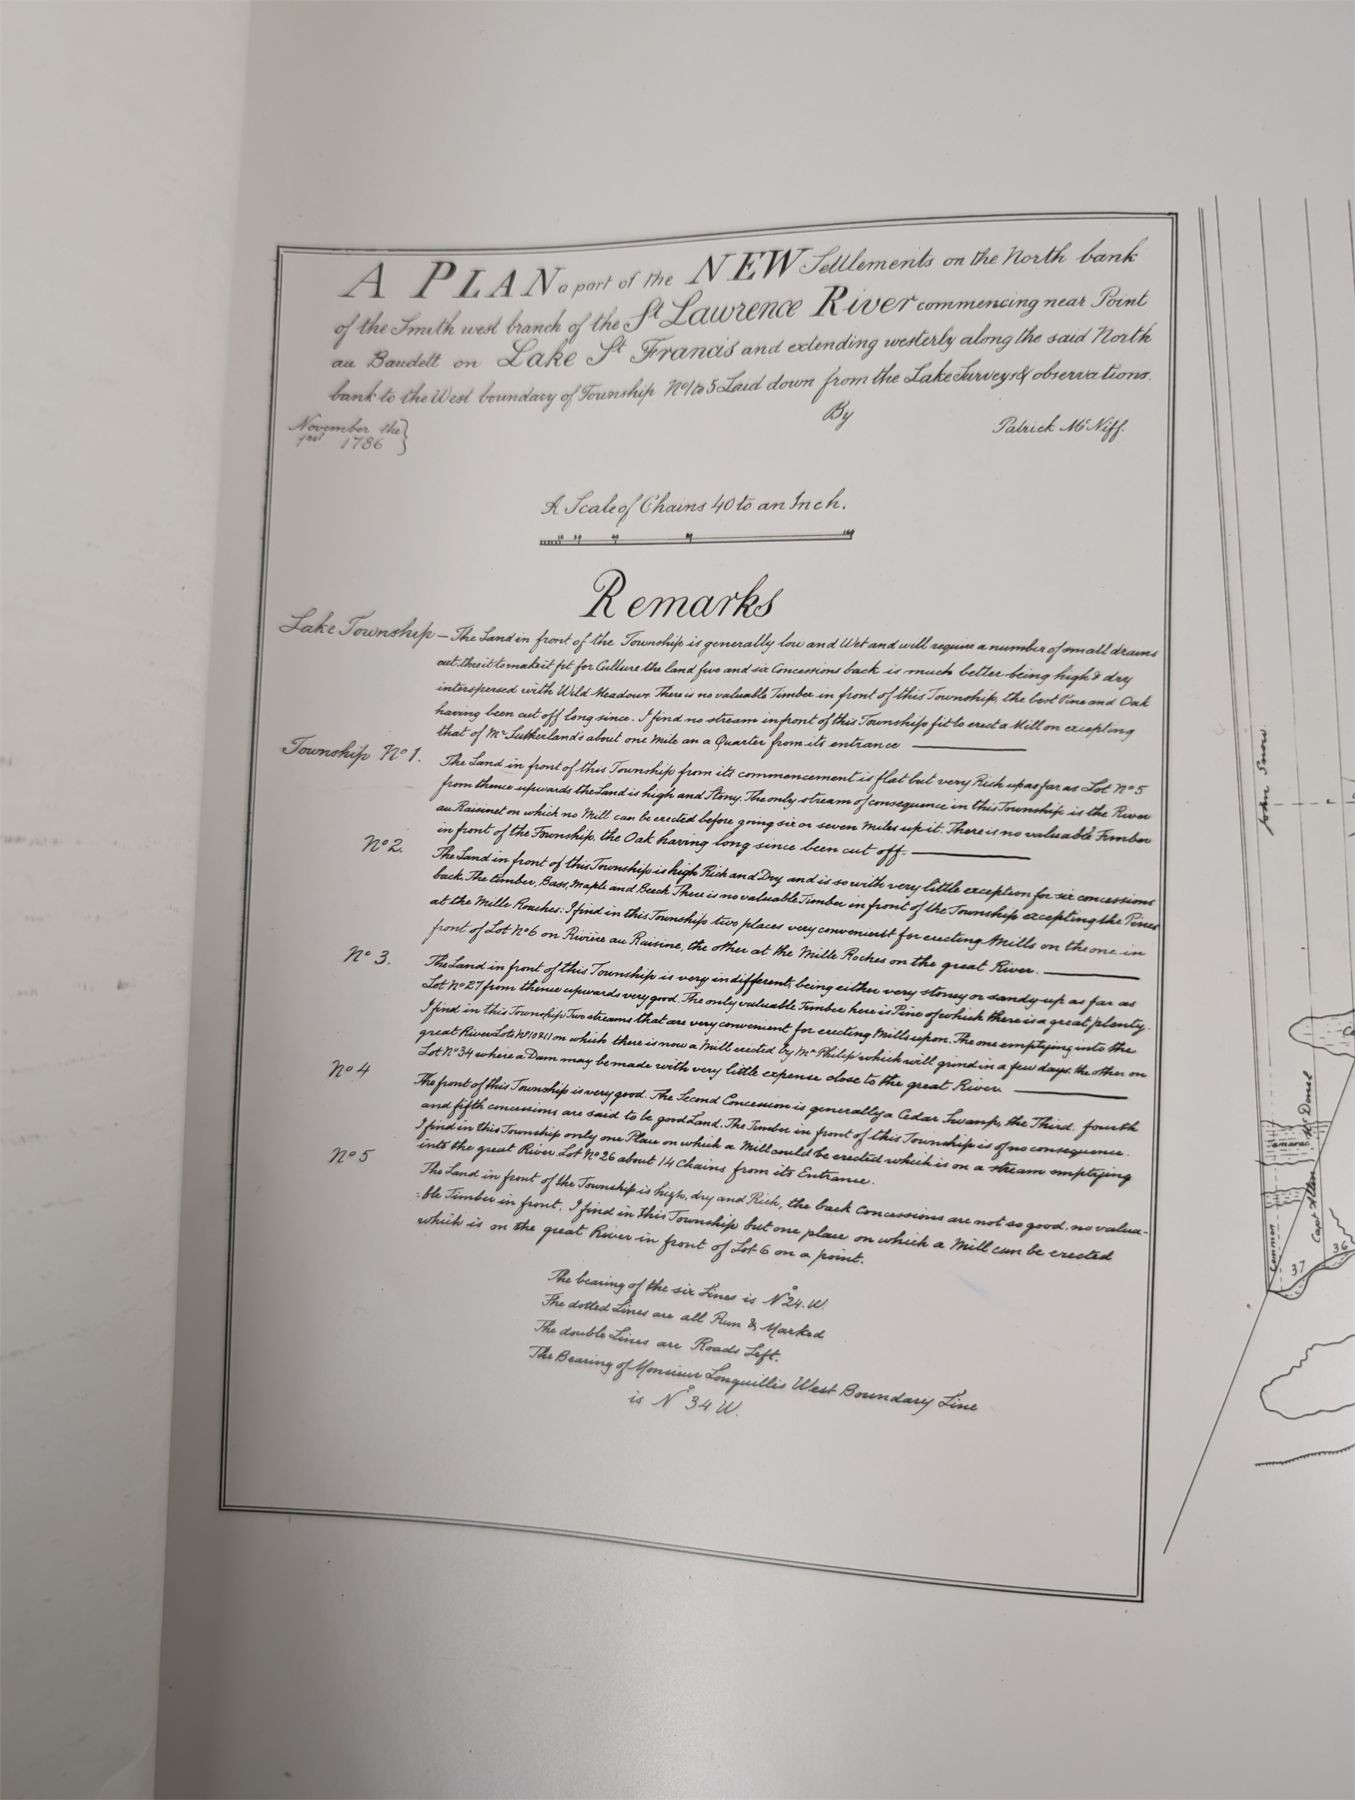 A PLAN o part of the NEW Settlements on the North bank
of the Smith west branch of the St Lawrence River commencing near Point
au Baudett on Lake St Francis and extending westerly along the said North
bank to the West boundary of Township No 1 to 5 Laid down from the Lake Surveys & observations.
By
November the
1rst 1786
Patrick McNiff.
A Scale of Chains 40 to an Inch.
10 20 40 80 160
Remarks
Lake Township — The Land in front of the Township is generally low and Wet and will require a number of small drains
cut thro it to make it fit for Culture the land five and six Concessions back is much better being high & dry
interspersed with Wild Meadows. There is no valuable Timber in front of this Township, the best Pine and Oak
having been cut off long since. I find no stream in front of this Township fit to erect a Mill on excepting
that of Mr Sutherland's about one Mile an a Quarter from its entrance
Township No 1. The Land in front of this Township from its commencement is flat but very Rich up as far as Lot No 5
from thence upwards the Land is high and Stony. The only stream of consequence in this Township is the River
au Raisinet on which no Mill can be erected before going six or seven Miles up it. There is no valuable Timber
in front of the Township, the Oak having long since been cut off.
No 2. The Land in front of this Township is high Rich and Dry and is so with very little exception for six concessions
back. The timber, Bass, Maple and Beech There is no valuable Timber in front of the Township excepting the Pines
at the Mille Roaches: I find in this Township two places very convenient for erecting Mills on the one in
front of Lot No 6 on Rivière au Raisine, the other at the Mille Roches on the great River.
No 3. The Land in front of this Township is very indifferent, being either very stoney or sandy up as far as
Lot No 27 from thence upwards very good. The only valuable Timber here is Pine of which there is a great plenty.
I find in this Township Two streams that are very convenient for erecting Mills upon. The one emptying into the
great River Lots No 10 & 11 on which there is now a Mill erected by Mr Philip which will grind in a few days. the other on
Lot No 34 where a Dam may be made with very little expense close to the great River.
No 4 The front of this Township is very good. The Second Concession is generally a Cedar Swamp, the Third. fourth
and fifth concessions are said to be good Land. The Timber in front of this Township is of no consequence.
I find in this Township only one Place on which a Mill could be erected which is on a stream emptying
into the great River Lot No 26 about 14 Chains from its Entrance.
No 5 The Land in front of the Township is high, dry and Rich, the back Concessions are not so good, no valua-
-ble Timber in front. I find in this Township but one place on which a Mill can be erected
which is on the great River in front of Lot 6 on a point.
The bearing of the six Lines is No 24. W.
The dotted Lines are all Run & Marked
The double Lines are Roads Left.
The Bearing of Monsieur Longuillis West Boundary Line
is No 34 W.
John Snow
McDonel
Capt Allen
Common
37
36